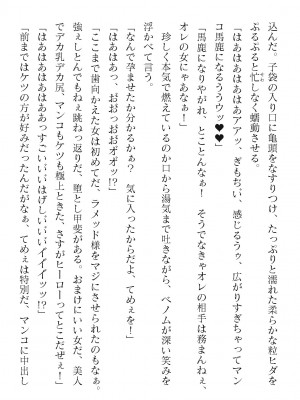 込んだ。子袋の入り口に亀頭をなすりつけ、たっぷりと濡れた柔らかな粒ヒダを
ぷるぷると忙しなく蠕動させる。
「はあはあはあはあアアッ、ぎもちい、感じるうゥ、広がりすぎちゃってマン
コ馬鹿になるうううウッ♥♥」
「馬鹿になりやがれ、とことんなぁ！　そうでなきゃオレの相手は務まんねぇ、
オレの女にゃあなぁ！」
珍しく本気で燃えているのか口から湯気まで吐きながら、ベノムが深い笑みを
浮かべて言う。
「なんで孕ませたか分かるかぁ？　気に入ったからだよ、てめぇを！」
「はあはあぁ、おおっおおオオッ!?」
「ここまで歯向かえた女は初めてだ、ラメッド様をマジにさせられたのもなぁ。
強ぇしとんでもねぇ跳ねっ返りだ、堕とし甲斐がある。おまけにいい女だ、美人
でデカ乳デカ尻、マンコもケツも極上ときた、さすがヒーローってとこだぜぇ！」
「はあはあはあああっすごいいいはげしいいいイイイーッッ!?」
「前まではケツの方が好みだったんだがなぁ、てめぇは特別だ、マンコに中出し